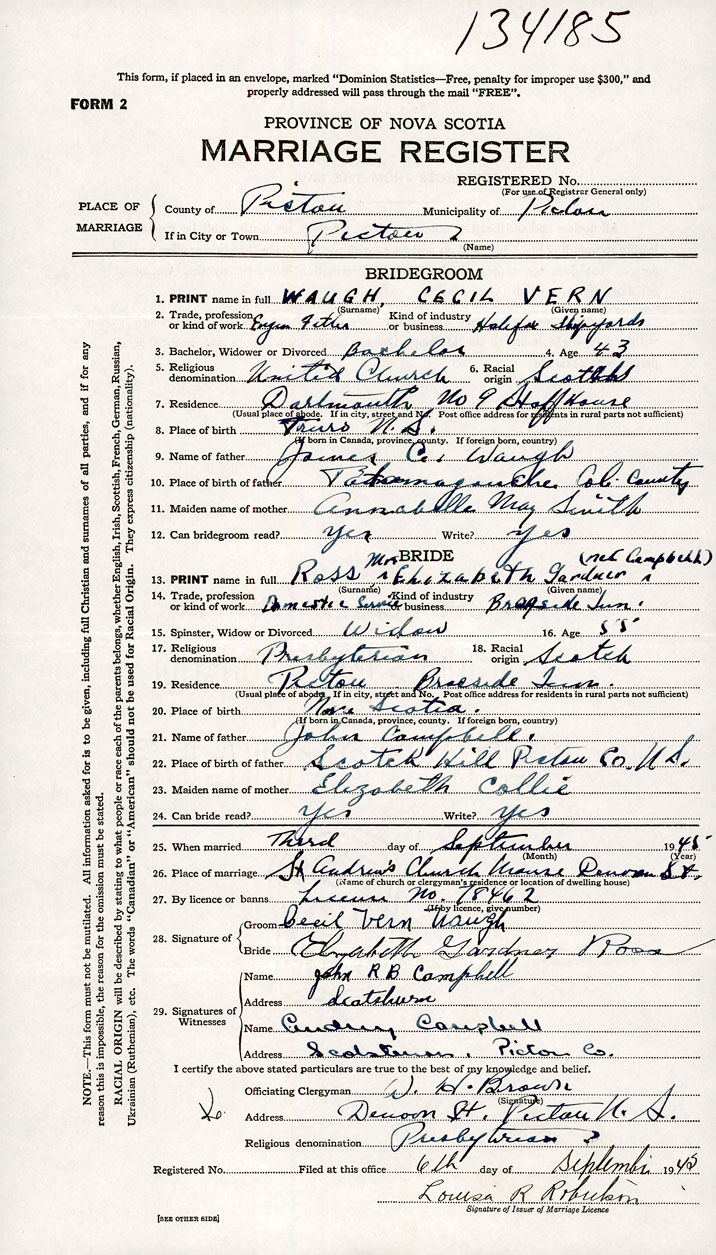 134185
This form, if placed in an envelope, marked "Dominion Statistics—Free, penalty for improper use $300," and
properly addressed will pass through the mail "FREE".
FORM 2
PROVINCE OF NOVA SCOTIA
MARRIAGE REGISTER
REGISTERED No.
(For use of Registrar General only)
PLACE OF MARRIAGE
County of Pictou Municipality of Pictou
If in City or Town Pictou
(Name)
BRIDEGROOM
1. PRINT name in full WAUGH, CECIL VERN
(Surname) (Given name)
2. Trade, profession or kind of work Engin Fitter Kind of industry or business Halifax Shipyards
3. Bachelor, Widower or Divorced Bachelor 4. Age 43
5. Religious denomination United Church 6. Racial origin Scotch
7. Residence Dartmouth No 9 Staff House
(Usual place of abode. If in city, street and No. Post office address for residents in rural parts not sufficient)
8. Place of birth Truro N.S.
(If born in Canada, province, county. If foreign born, country)
9. Name of father James C. Waugh
10. Place of birth of father Tatamagouche Col. County
11. Maiden name of mother Annabelle May Smith
12. Can bridegroom read? yes Write? yes
BRIDE
13. PRINT name in full Ross Mrs Elizabeth Gardner (neé Campbell)
(Surname) (Given name)
14. Trade, profession or kind of work Domestic Service Kind of industry or business Braeside Inn.
15. Spinster, Widow or Divorced Widow 16. Age 55
17. Religious denomination Presbyterian 18. Racial origin Scotch
19. Residence Pictou Braeside Inn.
(Usual place of abode. If in city, street and No. Post office address for residents in rural parts not sufficient)
20. Place of birth Nova Scotia.
(If born in Canada, province, county. If foreign born, country)
21. Name of father John Campbell.
22. Place of birth of father Scotch Hill Pictou Co. N.S.
23. Maiden name of mother Elizabeth Collie
24. Can bride read? yes Write? yes
25. When married Third day of September 1945
(Month) (Year)
26. Place of marriage St Andrew's Church Manse Denoon St.
(Name of church or clergyman's residence or location of dwelling house)
27. By licence or banns License No. 78462
(If by licence, give number)
28. Signature of
Groom Cecil Vern Waugh
Bride Elizabeth Gardner Ross
29. Signatures of Witnesses
Name John RB Campbell
Address Scotsburn
Name Audrey Campbell
Address Scotsburn, Pictou Co.
I certify the above stated particulars are true to the best of my knowledge and belief.
Officiating Clergyman W. H. Brown
(Signature)
Address Denoon St. Pictou N.S.
Religious denomination Presbyterian
Registered No. Filed at this office 6th day of September 1945
Louisa R Robertson
Signature of Issuer of Marriage Licence
[SEE OTHER SIDE]
NOTE.—This form must not be mutilated. All information asked for is to be given, including full Christian and surnames of all parties, and if for any
reason this is impossible, the reason for the omission must be stated.
RACIAL ORIGIN will be described by stating to what people or race each of the parents belongs, whether English, Irish, Scottish, French, German, Russian,
Ukrainian (Ruthenian), etc. The words "Canadian" or "American" should not be used for Racial Origin. They express citizenship (nationality).